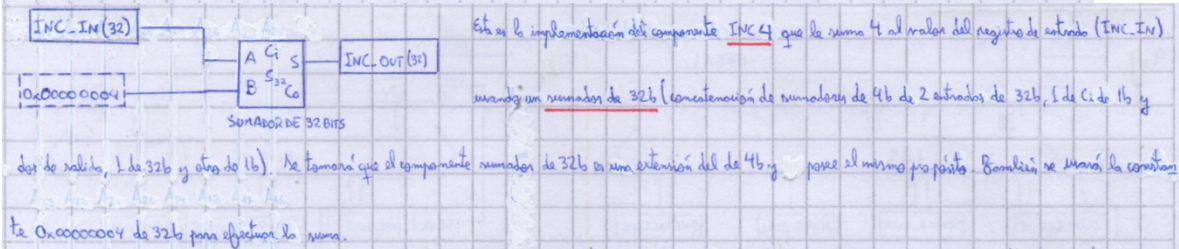 INC_IN(32)
0x00000004
A Ci S
B S32 Co
INC_OUT(32)
SUMADOR DE 32 BITS
Esta es la implementación del componente INC4 que le suma 4 al valor del registro de entrada (INC_IN)
usando un sumador de 32b (concatenación de sumadores de 4b de 2 entradas de 32b, 1 de Ci de 1b y
dos de salida, 1 de 32b y otra de 1b). Se tomará que el componente sumador de 32b es una extensión del de 4b y posee el mismo propósito. También se usará la constan
te 0x00000004 de 32b para efectuar la suma.